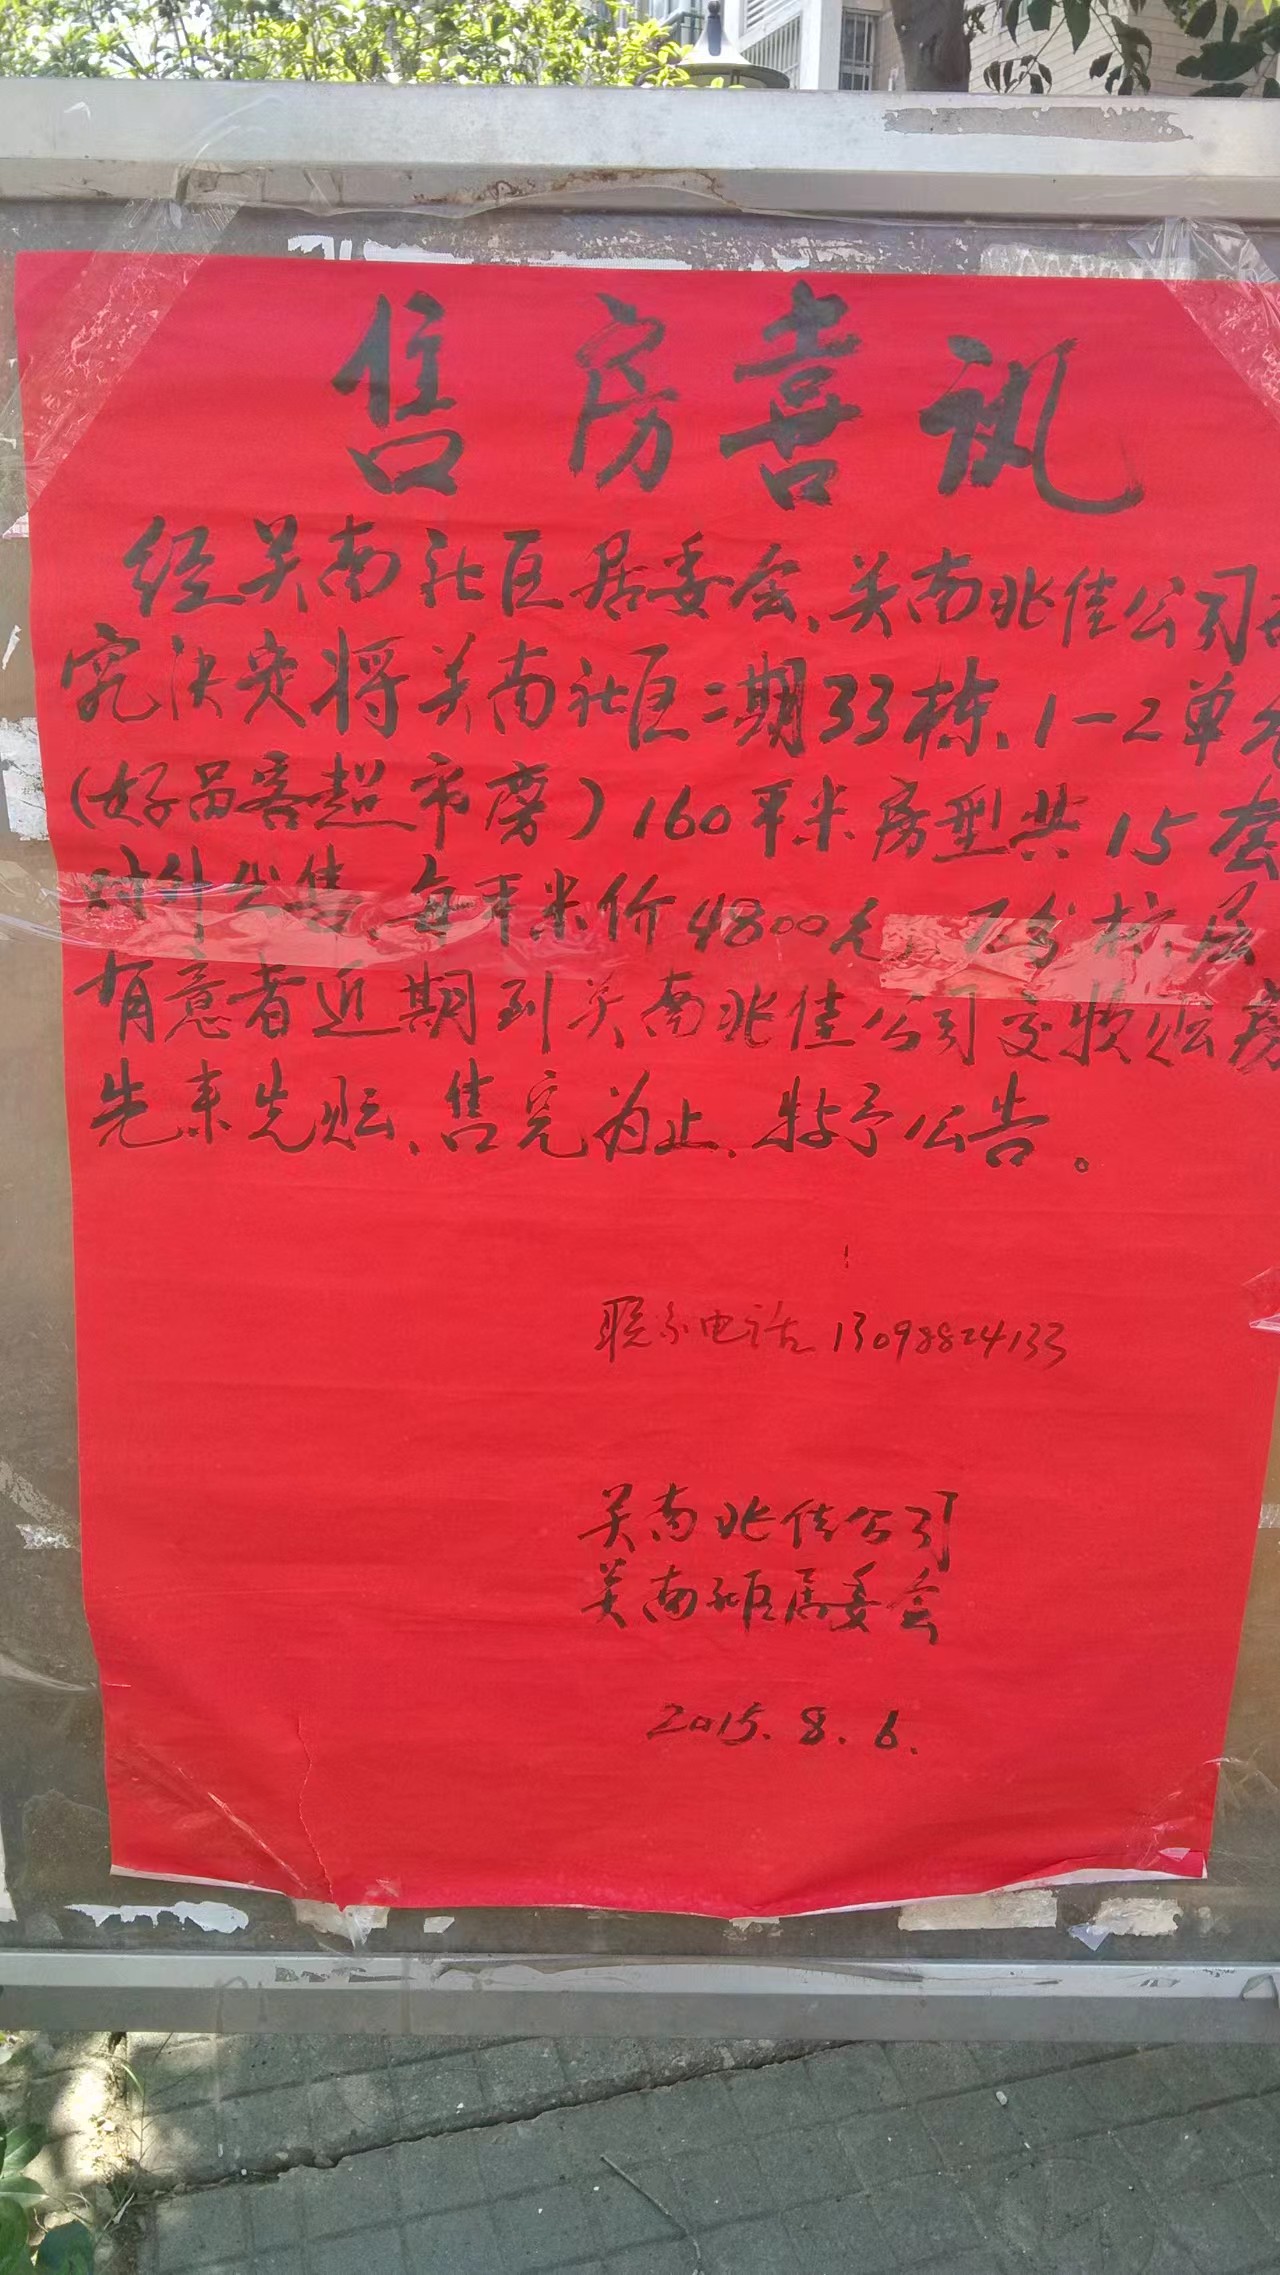 售房喜讯
经关南社区居委会、关南兆佳公司
究决定将关南社区二期33栋、1-2单元
(好品客超市旁)160平米房型共15套
对外出售、每平米价4800元、不分栋、层
有意者近期到关南兆佳公司交款购房
先来先购、售完为止、特予公告。
联系电话 13098824133
关南兆佳公司
关南社区居委会
2015.8.6.